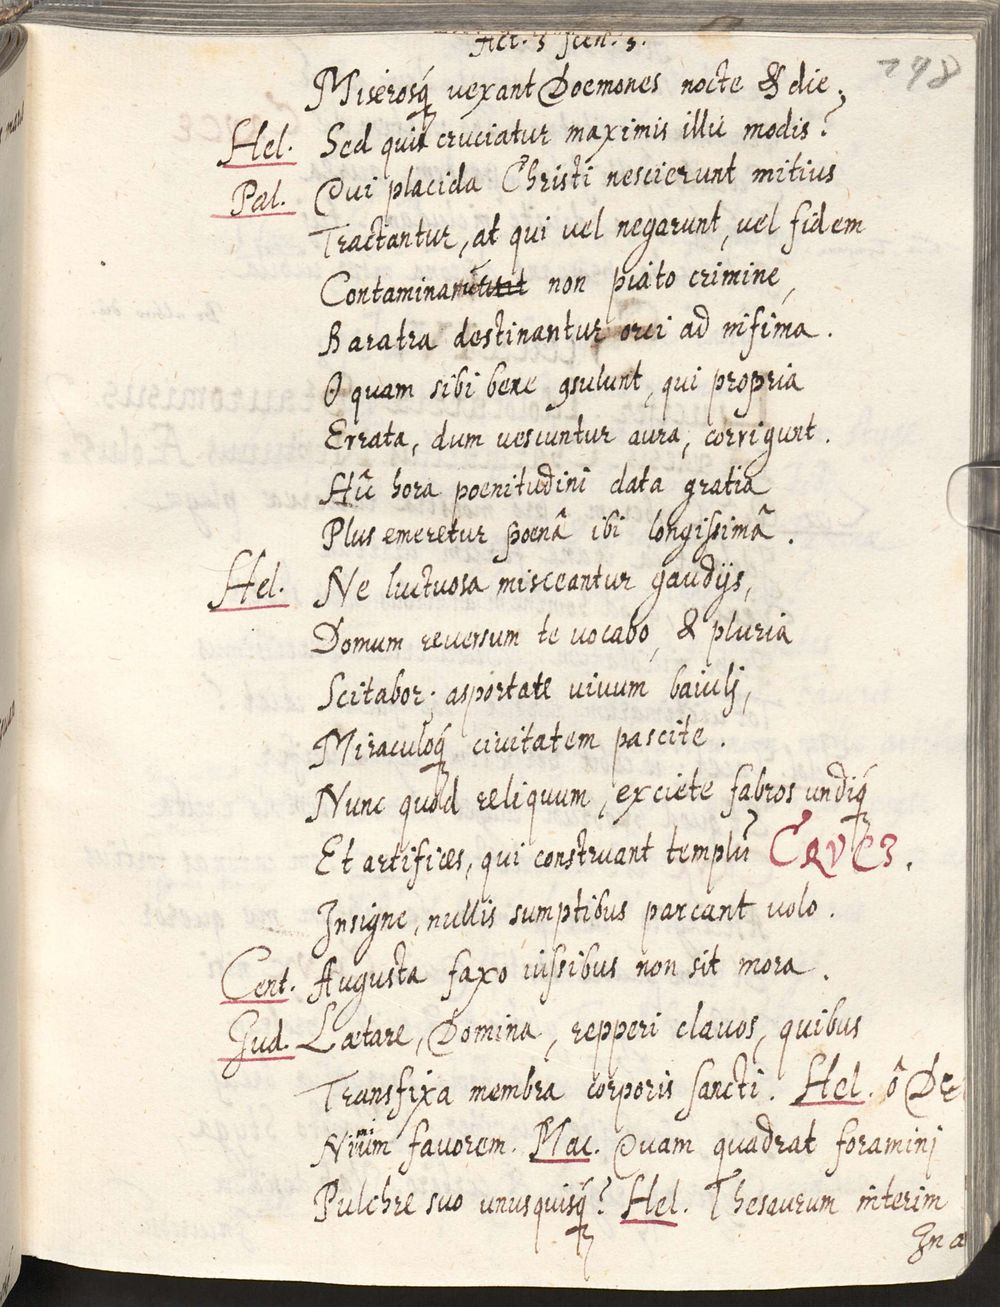 Act. 3 scen. 3.
198
Miserosq́ vexant Doemones nocte & die.
Hel. Sed quis cruciatur maximis illic modis?
Pal. Qui placida Christi nescierunt mitius
Tractantur, at qui vel negarunt, vel fidem
Contaminarūt non piato crimine,
Baratra destinantur orci ad infima.
O quam sibi bene gsulunt, qui propria
Errata, dum vescuntur aura, corrigunt.
Hîc hora poenitudini data gratia
Plus emeretur poenâ ibi longissimâ.
Hel. Ne luctuosa misceantur gaudijs,
Domum reversum te vocabo, & pluria
Scitabor. asportate vivum baiulj,
Miraculoq́ civitatem pascite.
Nunc quod reliquum, exciete fabros undiq́
Et artifices, qui construant templū CRVCJ.
Insigne, nullis sumptibus parcant volo.
Cent. Augusta faxo iussibus non sit mora.
Jud. Lætare, Domina, repperi clavos, quibus
Transfixa membra corporis sancti. Hel. ô De-
Nimium favorem. Mac. Quam quadrat foraminj
Pulchre suo unusquisq́? Hel. Thesaurum interim
In a